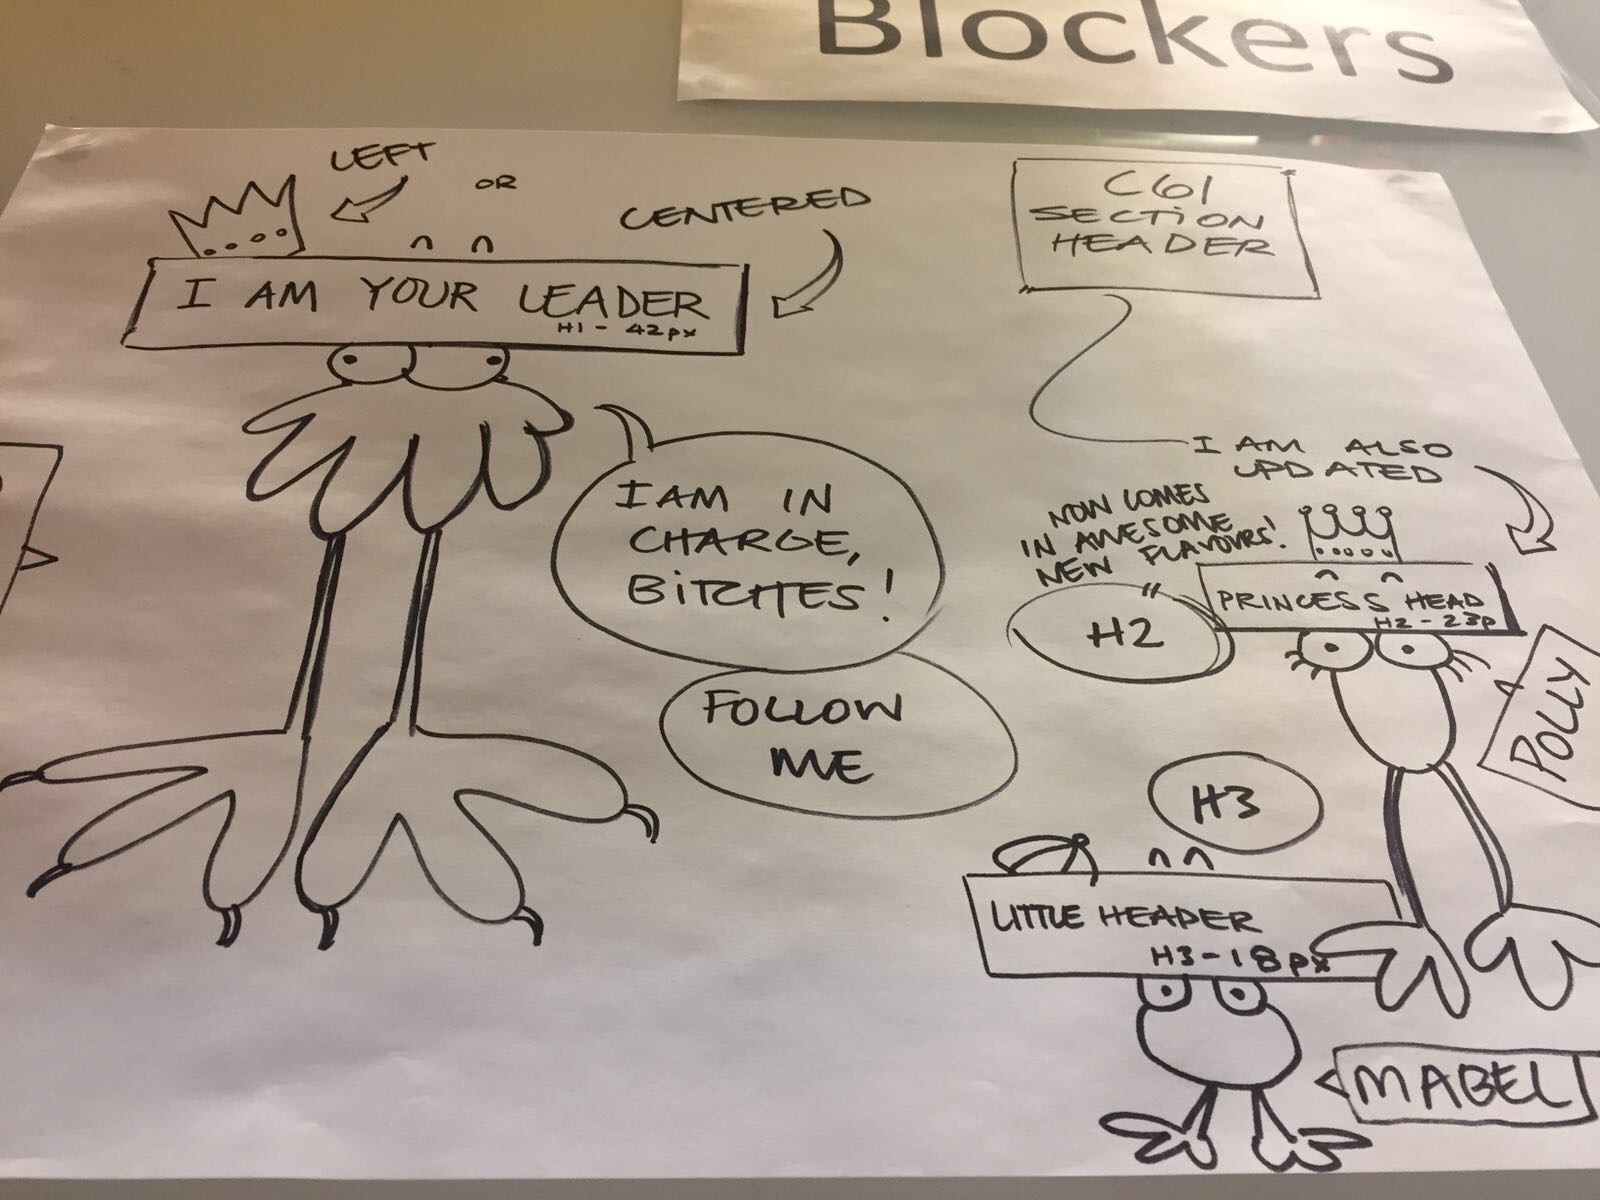 Blockers
LEFT
OR
CENTERED
I AM YOUR LEADER
H1 - 42px
I AM IN
CHARGE,
BITCHES!
FOLLOW
ME
C61
SECTION
HEADER
I AM ALSO
UPDATED
NOW COMES
IN AWESOME
NEW FLAVOURS!
H2
PRINCESS HEAD
H2 - 23p
POLLY
H3
LITTLE HEADER
H3 - 18px
MABEL